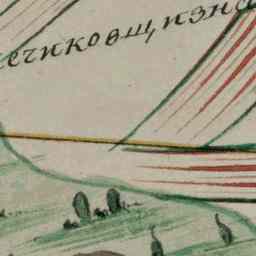 ечиковщизна